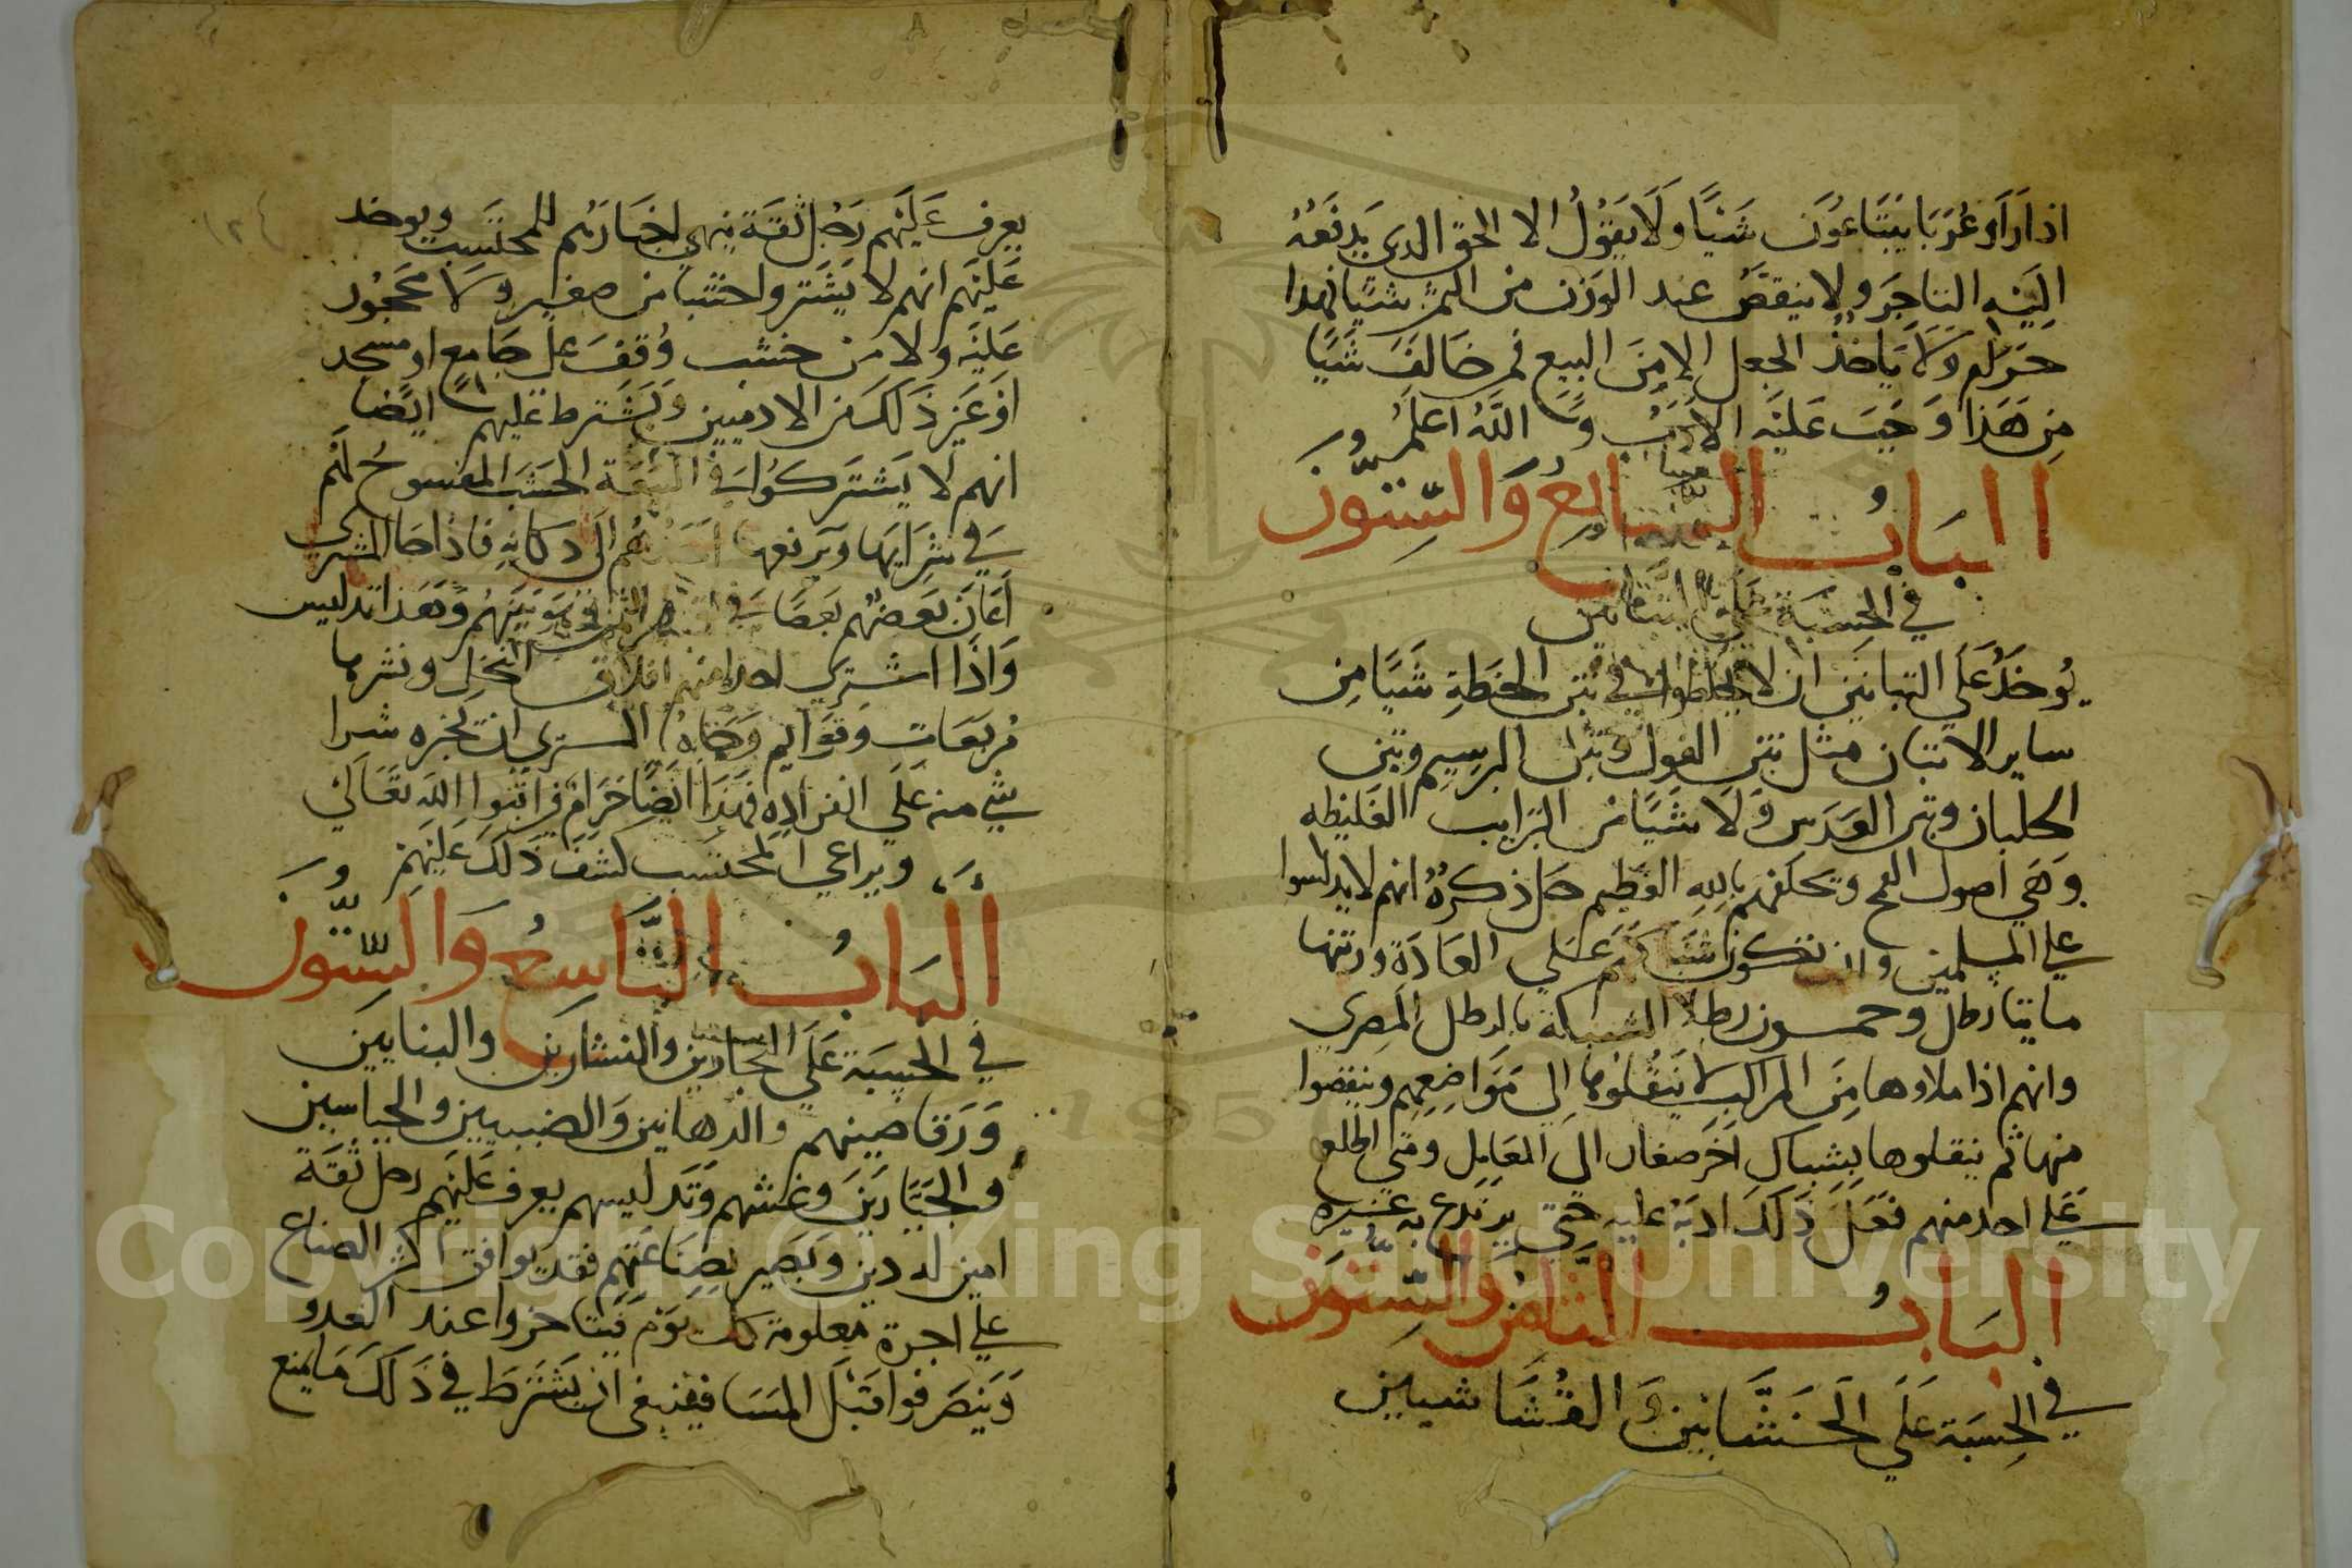 اذا رَاوعُرَبَا يَبتَاعُوَن شَيًا وَلَا يَقُوْلُ الا الحق الدي يَدفَعُهُ
اليَهِ التاجَر ولا ينقصُ عند الوزن من الثمن شَيًا فهدا
حَرَام وَلاَ يَاخُذُ الجعل الا مِنَ البيع فمن خَالَفَ شَيًا
مِن هَذَا وَجَبَ عَليَه الادَبُ وَ اللَّهُ اعلَمُ
البَابُ السابعُ وَالسِّتوُن
في الحِسبَة عَلَى التبانين
يُوخَذُ عَلَي التبانين ان لا يخلطوا في تبن الحنطَةِ شَيًا مِن
ساير الاتبان مثل تبن الفول وتبن البرسيم وتبن
الجلبان وتبن العَدَس وَلاَ شَيًا من التراب الغليظه
وَهَي اصول القمح ويحلفهم بالله العَظيم جل ذكرهُ انهم لا يدلسوا
علي المسلمين وان تكون شبَاكهم عَلي العَادَة وزنتها
مايتا رطل وخمسون رطلا الشبكة بالرطل المصري
وانهم اذا ملاوها مِنَ المراكب لا يَنقُلوها الي مَوَاضِعِهِم وينقصوا
منها ثم ينقلوها بشِباك اُخَر صغار الى المعَامِل ومَتى اطلع
عَلى احد منهم فعَلَ ذَلَكَ ادبَهُ عليه حَتي يرتدع به غيره
البَابُ الثَّامنُ وَالسِّتوُن
في الحِسبَة عَلَي الخَشَّابينَ وَ القُشَاشيين
يعرف عَليَهم رَجُل ثقَة ينهي اخبَارَهُم للمحتَسِب ويوخد
عَليَهم انهم لا يَشتَروا خشبا من صغير ولا محجُور
عَليَه ولا من خشب وُقفَ على جَامِعِ او مسجد
اوَغَير ذَلكَ من الادميين وَيَشترط عَليهم ايضا
انهم لا يَشتَركوُا في البَيعَة الخَشَب المفسوخ كلهم
في شِرَايهَا وَيرفعها احَدُهُم الَى دكانِه فاذا جَا المشتري
اَعَانَ بَعضُهُم بَعضا في الثمن فهو بَينَهُم وَهَذا تدليس
وَاذَا اشتري احد منهم افلاق النخل ونشرها
مُربَعَات وقوَايم وَجَاهُ المشتري ان يخبره شرا
شي منه عَلَي انفرادِه فهَذَا ايضًا حَرَام فراقبوا اللهِ تعَالَي
ويراعي المحتسب كشفَ ذَلكَ عَليَهِم
البَابُ التَّاسِعُ وَالسِّتوُن
في الحِسبَة عَلَي النجارين والنشارين والبنايين
وَرَقاصينهم والدهانين وَالضببيين والجباسين
والجَيَّارَينَ وَغشهم وَتَدليسهم يعرف عَليَهم رجل ثقَة
امين له دين وَبَصَير بصِنَاعَتِهِم فقد يوافق اكثر الصناع
علي اجرة مَعلومة كل يَوم فيتاخروا عند الغدو
وَيَنصَرفوا قبَل المسَا فينبغي ان يشترط في ذَلكَ مَا يمنع